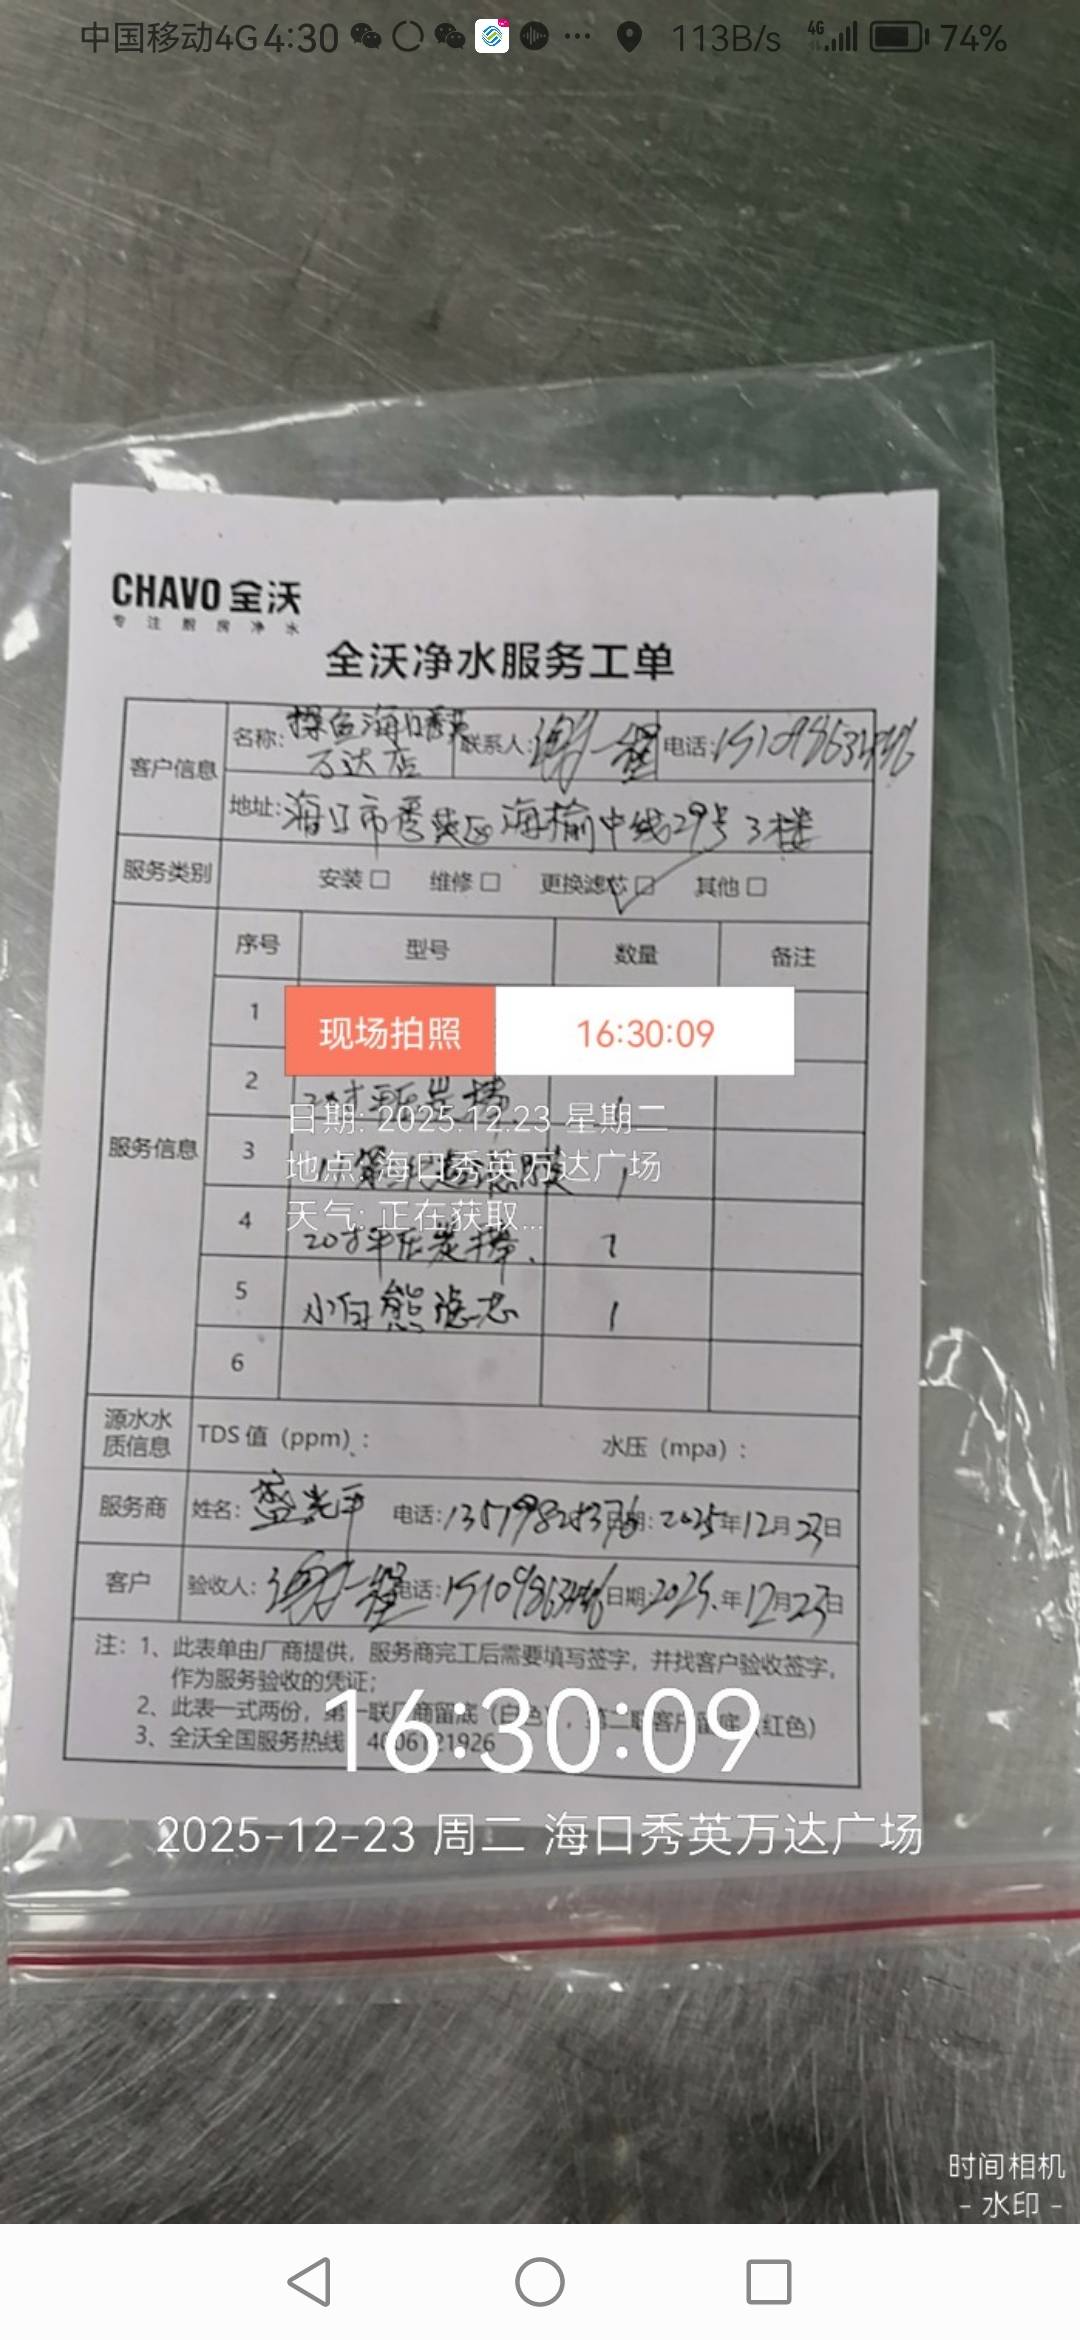 中国移动4G 4:30 113B/s 4G 74%
CHAVO 全沃
专注厨房净水
全沃净水服务工单
客户信息 名称: 探鱼海口秀英万达店 联系人: 电话:
地址: 海口市秀英区海榆中线29号3楼
服务类别 安装 □ 维修 □ 更换滤芯 □ 其他 □
服务信息 序号 型号 数量 备注
1
现场拍照 16:30:09
2
日期: 2025.12.23 星期二
3 1
地点: 海口秀英万达广场
天气: 正在获取...
4 20寸平压炭棒
5 小白熊滤芯 1
6
源水水质信息 TDS 值 (ppm): 水压 (mpa):
服务商 姓名: 盛光平 电话: 日期: 2025年12月23日
客户 验收人: 电话: 日期: 2025.年12月23日
注: 1、此表单由厂商提供，服务商完工后需要填写签字，并找客户验收签字，
作为服务验收的凭证；
2、此表一式两份，第一联厂商留底（白色），第二联客户留底（红色）
3、全沃全国服务热线 4006121926
16:30:09
2025-12-23 周二 海口秀英万达广场
时间相机
- 水印 -